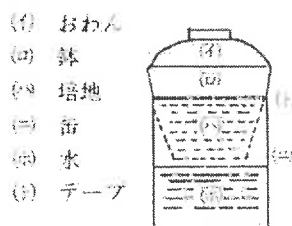 (イ) おわん
(ロ) 鉢
(ハ) 培地
(ニ) 缶
(ホ) 水
(ト) テープ
(イ)
(ロ)
(ハ)
(ニ)
(ホ)